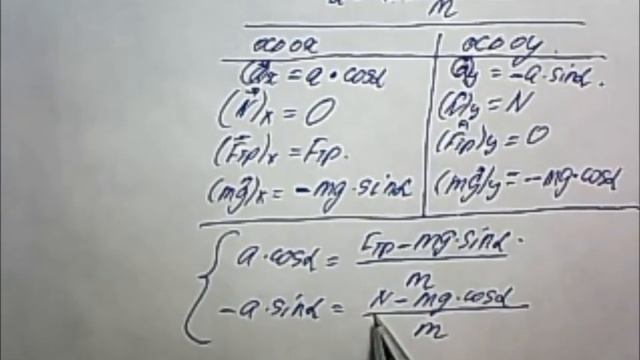 m
ось ox | ось oy.
(a⃗)x = a • cosα | (a⃗)y = -a·sinα.
(N⃗)x = 0 | (N⃗)y = N
(F⃗тр)x = Fтр. | (F⃗тр)y = 0
(mg⃗)x = -mg·sinα | (mg⃗)y = -mg·cosα
{ a·cosα = (Fтр - mg·sinα)/m
-a·sinα = (N - mg·cosα)/m